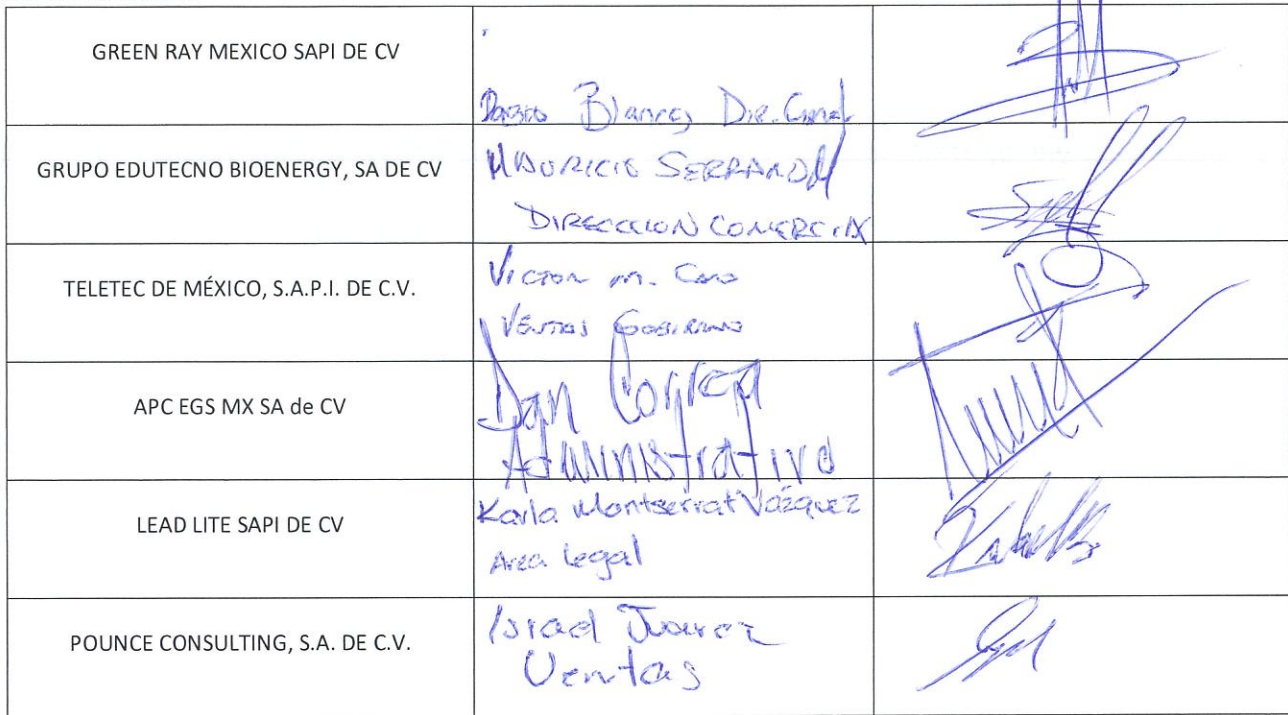 GREEN RAY MEXICO SAPI DE CV
Blanco, Dir. Gral
GRUPO EDUTECNO BIOENERGY, SA DE CV
MAURICIO SERRANO M
DIRECCION COMERCIAL
TELETEC DE MÉXICO, S.A.P.I. DE C.V.
Victor M. Caro
Ventas Gobierno
APC EGS MX SA de CV
Dan Correa
Administrativo
LEAD LITE SAPI DE CV
Karla Montserrat Vázquez
Area legal
POUNCE CONSULTING, S.A. DE C.V.
Israel Juarez
Ventas